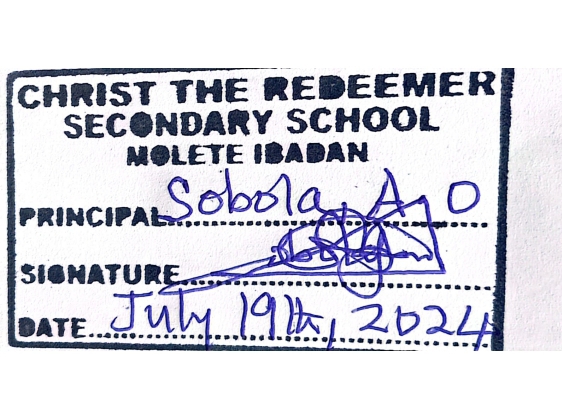 CHRIST THE REDEEMER
SECONDARY SCHOOL
MOLETE IBADAN
PRINCIPAL Sobola, A, O
SIGNATURE
DATE... July 19th, 2024